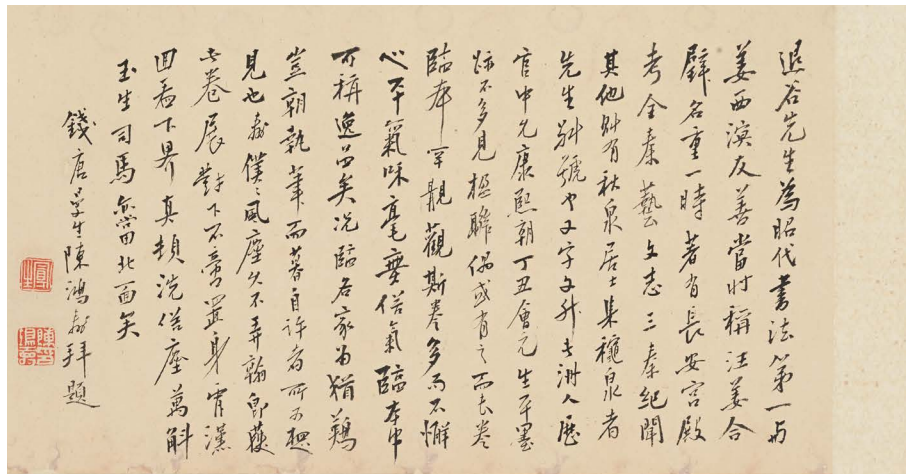 退谷先生為昭代書法第一與
姜西溟友善當時稱汪姜合
璧名重一時著有長安宮殿
考全秦藝文志三秦紀聞
其他則有秋泉居士集穐泉者
先生別號也又字文升長洲人歷
官中允康熙朝丁丑會元生平墨
跡不多見楹聯偶或有之而長卷
臨本罕覯觀斯卷多而不懈
心平氣味毫塵俗氣臨本中
可稱逸品矣況臨各家為猶難
豈朝執筆而暮自許者所可想
見也壽僕僕風塵久不弄翰卽獲
長卷展對下不啻置身霄漢
回看下界真頓洗俗塵萬斛
玉生司馬亦當北面矣
錢唐曼生陳鴻壽拜題
陳鴻壽